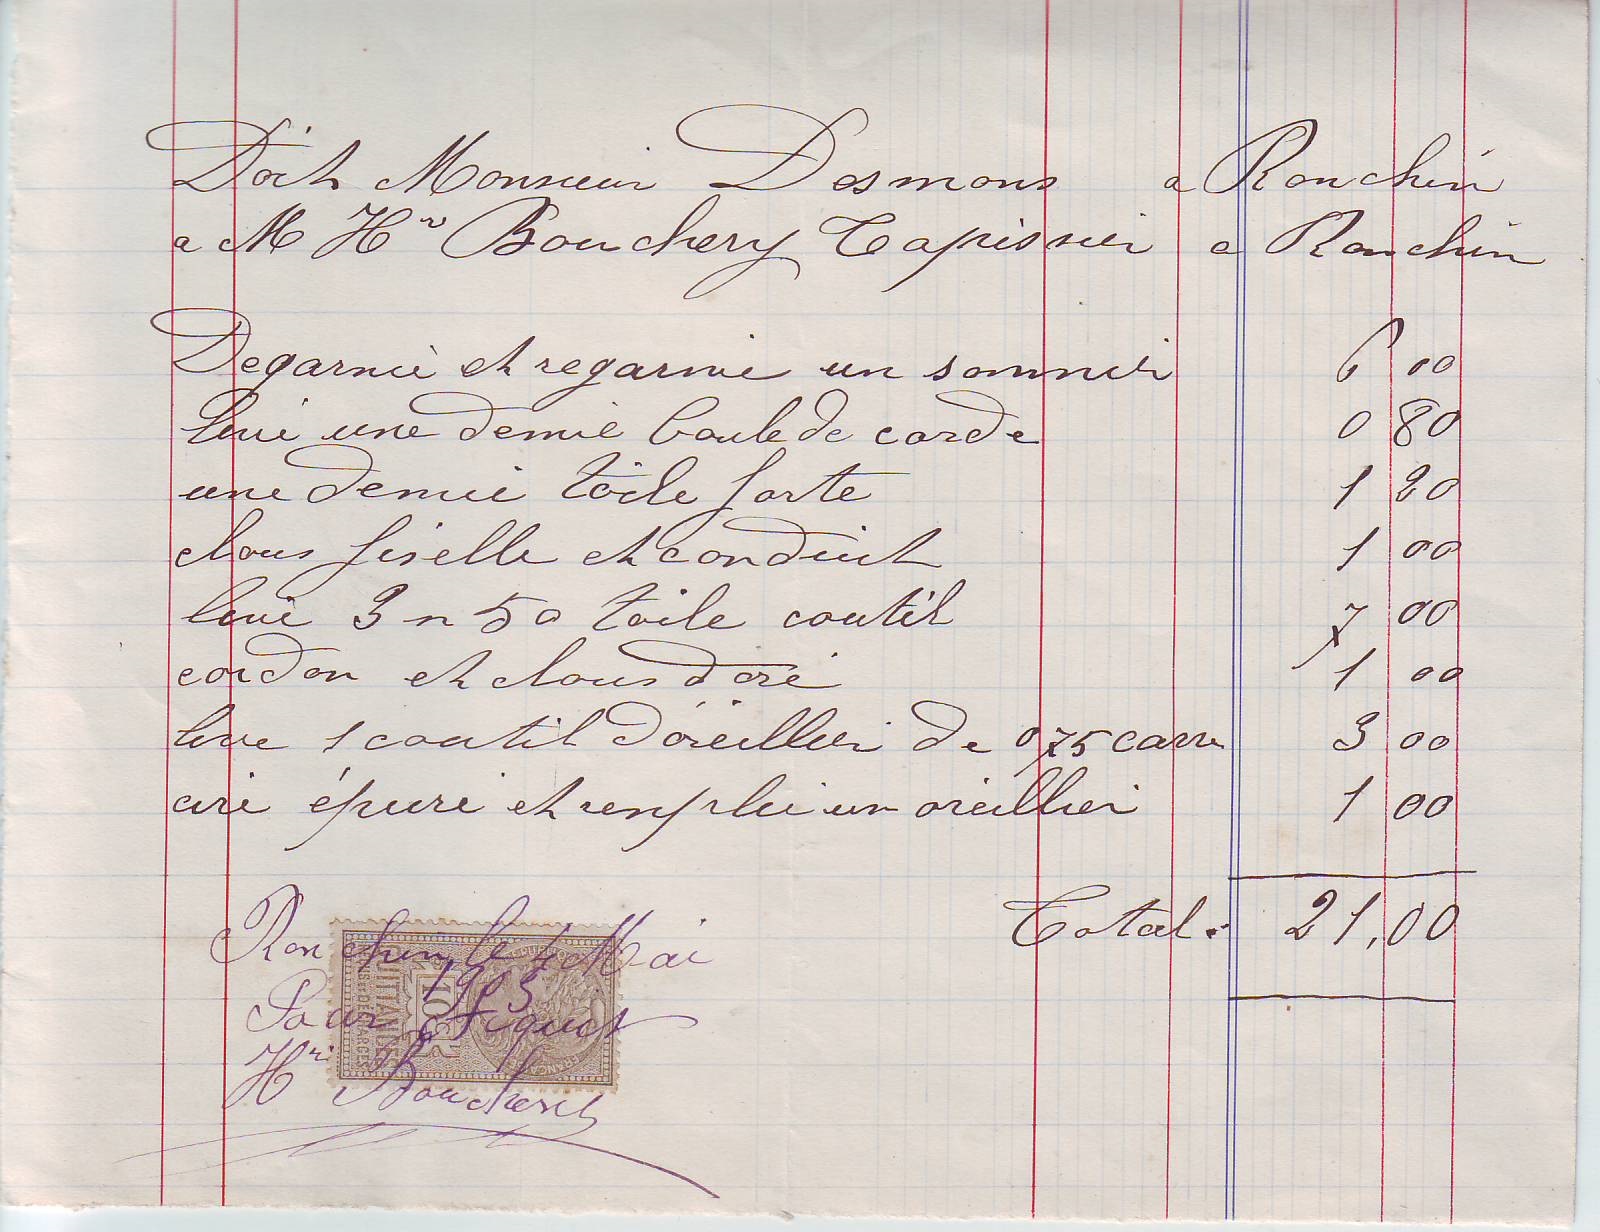 Doit Monsieur Desmons a Ronchin
a M Hri Bouchery Tapissier a Ronchin
Degarnie et regarnie un sommier 6 00
livri une demie boule de corde 0 80
une demie toile forte 1 20
clous fiselle et conduit 1 00
livri 3 m 50 toile coutil 7 00
cordon et clous doré 1 00
livre 1 coutil d'oreillier de 0 75 carre 3 00
ciré épuré et remplie un oreillier 1 00
Total : 21,00
Ronchin, le 4 Mai
1903
Pour Aquit
Hri Bouchery
QUITTANCES
REÇUS ET DÉCHARGES
10